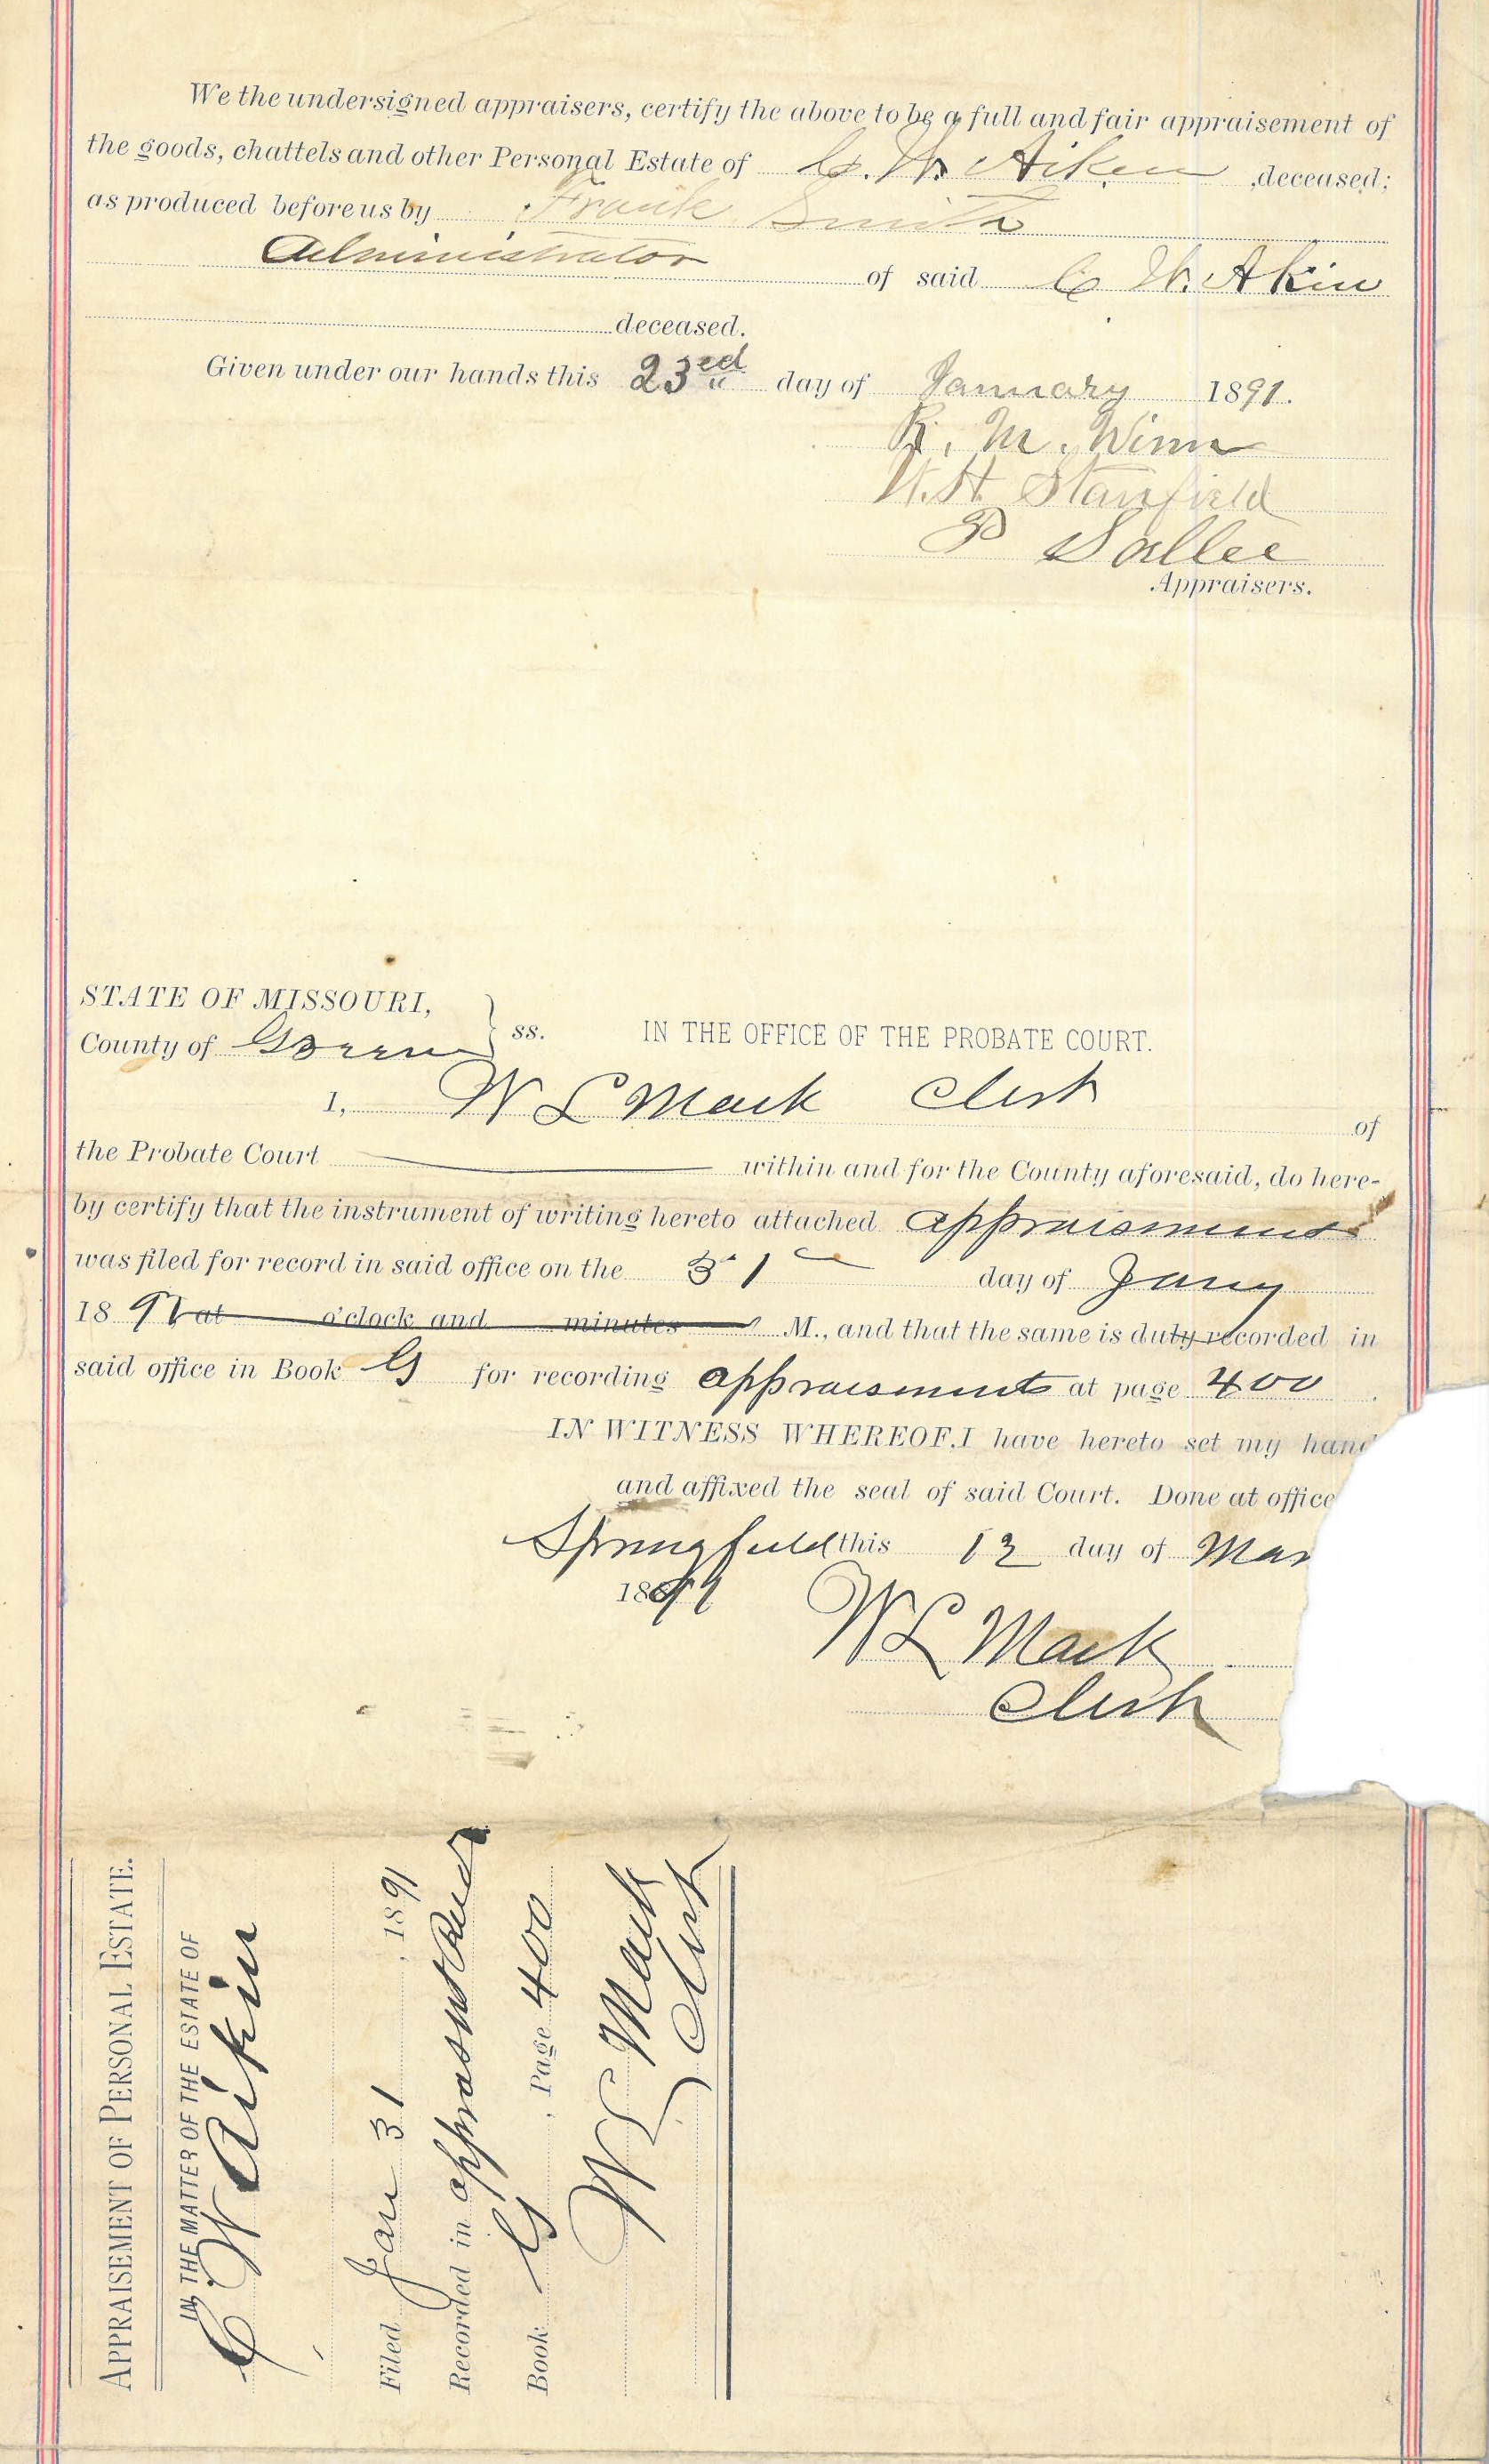 We the undersigned appraisers, certify the above to be a full and fair appraisement of
the goods, chattels and other Personal Estate of C. W. Aiken ,deceased;
as produced before us by Frank Smith
Administrator of said C W. Akin
deceased.
Given under our hands this 23ed day of January 1891.
R. M. Winn
W. H. Stanfield
P Sallee
Appraisers.
STATE OF MISSOURI,
County of Green } ss. IN THE OFFICE OF THE PROBATE COURT.
I, W L Mack Clerk of
the Probate Court within and for the County aforesaid, do here-
by certify that the instrument of writing hereto attached appraisment
was filed for record in said office on the 31 day of Jany
1891 at o'clock and minutes M., and that the same is duly recorded in
said office in Book G for recording appraisments at page 400
IN WITNESS WHEREOF, I have hereto set my hand
and affixed the seal of said Court. Done at office
Springfield this 12 day of Mar
1891
W L Mack
Clerk
APPRAISEMENT OF PERSONAL ESTATE.
IN THE MATTER OF THE ESTATE OF
C. W Aikin
Filed Jan 31 , 1891
Recorded in appraismt Record
Book G , Page 400
W L Mack
Clerk